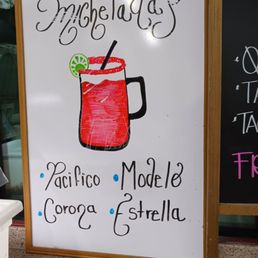 Micheladas
• Pacifico • Modelo
• Corona • Estrella
TA
TA
FR